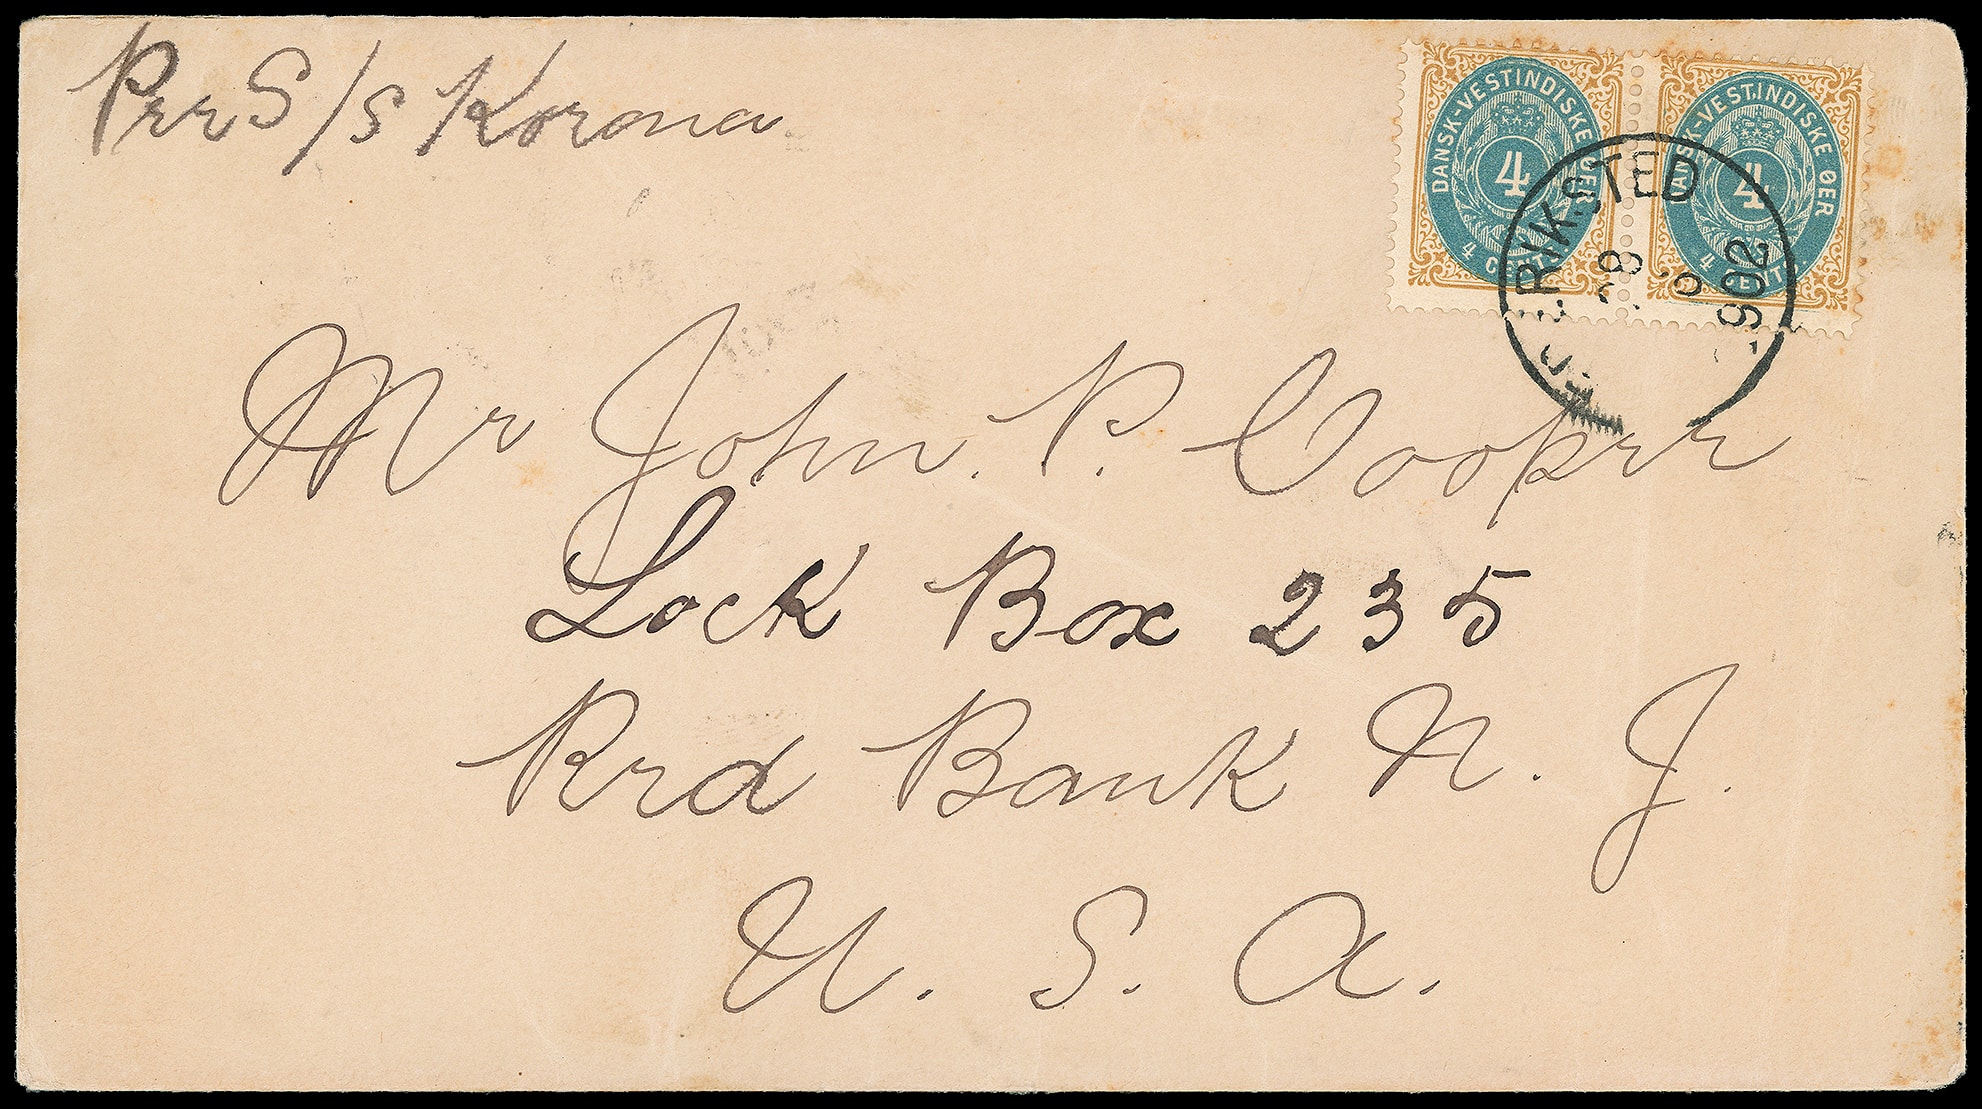 Per S/s Korona
DANSK-VESTINDISKE ØER
4
4 CENTS
DANSK-VESTINDISKE ØER
4
4 CENTS
FREDERIKSTED
28
1902
Mr John. P. Cooper
Lock Box 235
Red Bank N. J.
U. S. A.